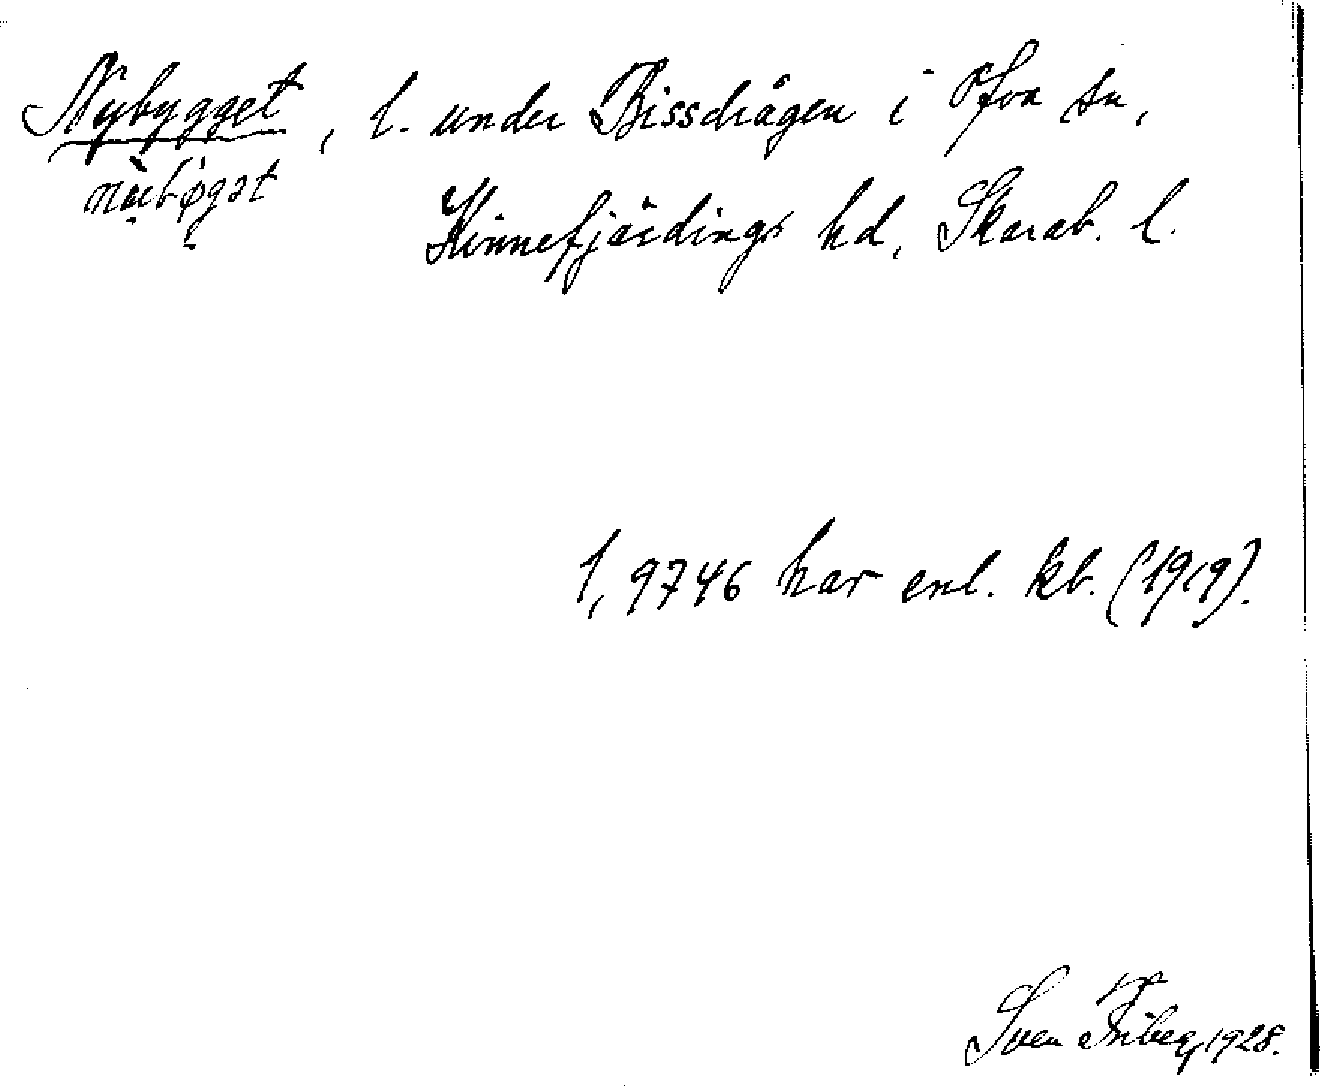 Nybygget, l. under Bissdrågen i Ova sn,
Kinnefjärdings hd, Skarab. l.
1,9746 har enl. kb. (1919).
Sven Friberg, 1928.